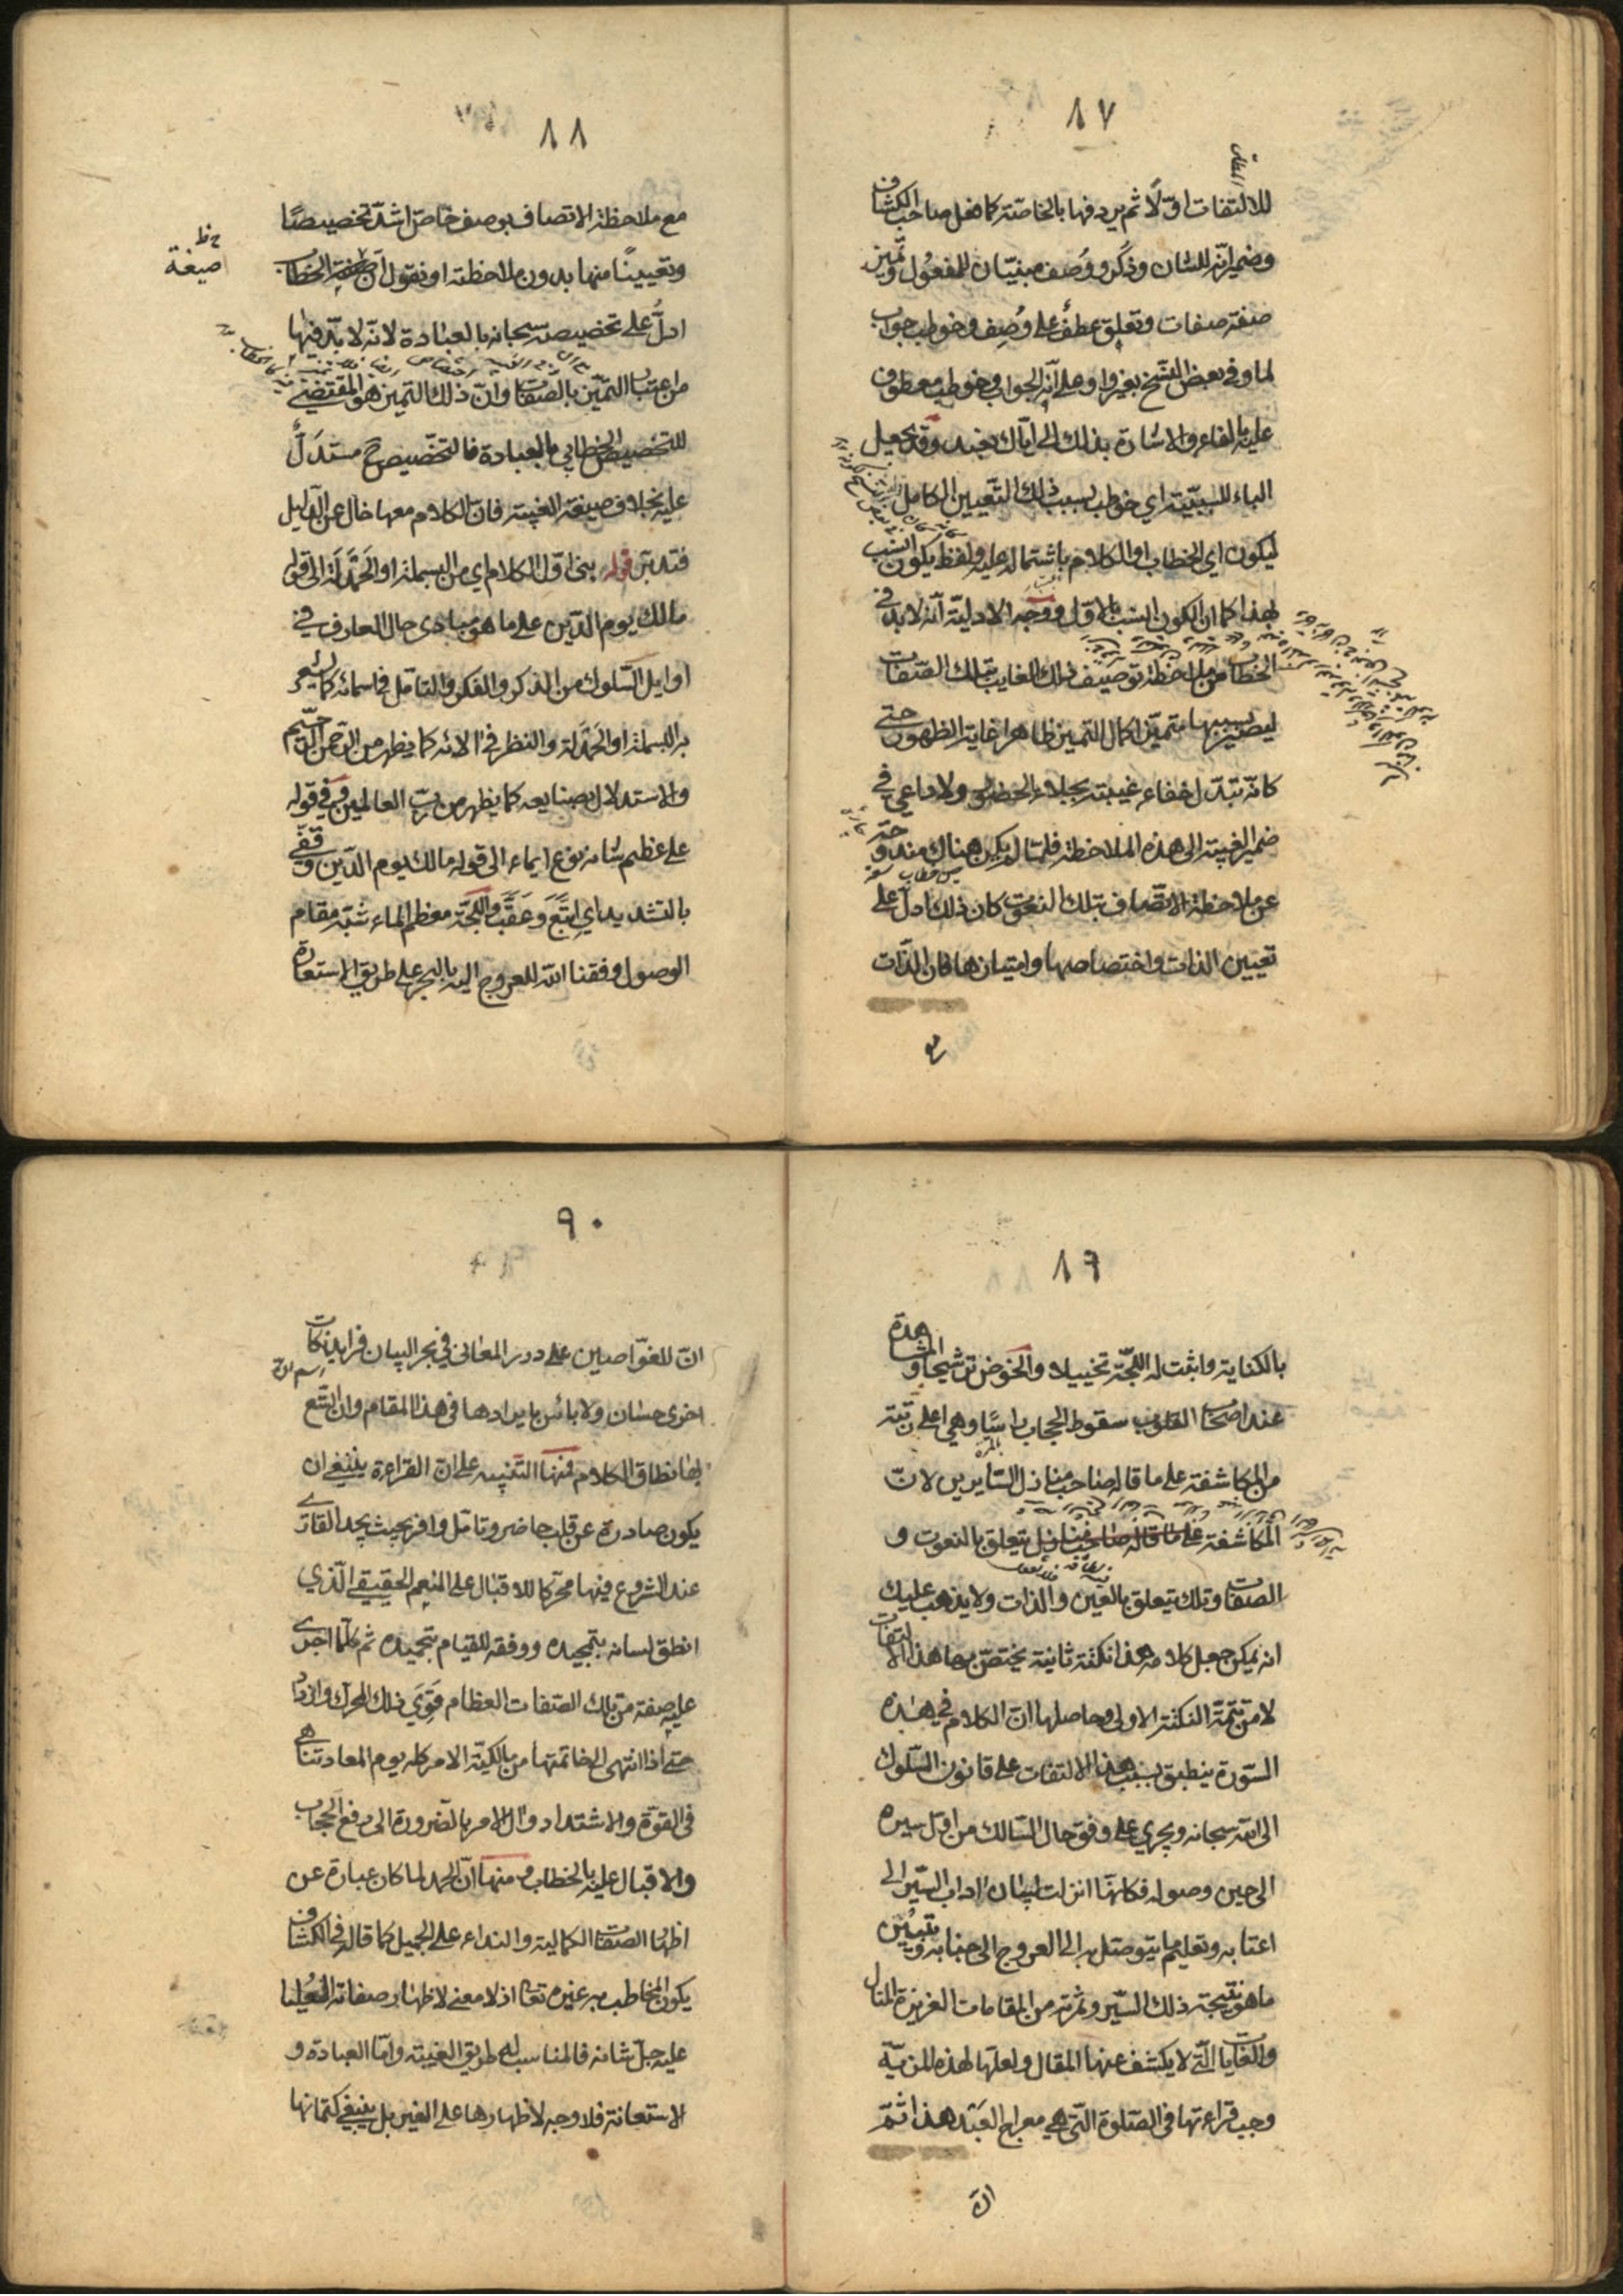 ٨٧
للالتفات اوّلًا ثم يردفها بالخاصّة كما فعل صاحب الكشاف
وضمير انّه للشان وذُكر ووُصف مبنيّان للمفعول وتميّز
صفة صفات وتعلق عطف على وُصِف وخوطب جواب
لما وفي بعض النسخ بغير واو على انّه الجواب وخوطب معطوف
عليه بالفاء والاشارة بذلك الى ايّاك نعبد وقد يجعل
الباء للسببيّة اي خوطب بسبب ذلك التعيين الكامل
ليكون اي الخطاب او الكلام باشتماله عليه ولفظ يكون انسب
بهذا كما ان لكون انسب بالاول ووجه الادلية انّه لابد في
الخطاب من ملاحظة توصيف ذلك الغايب بتلك الصّفات
ليصير بسببها متميّزا كمال التميز ظاهرا غاية الظهور حتى
كانّه تبدّل خفاء غيبته بجلاء الحضور ولا داعي في
ضمير الغيبة الى هذه الملاحظة فلمّا لم يكن هناك مندوحة
عن ملاحظة الاتصاف بتلك النعوت كان ذلك ادلّ على
تعيين الذات واختصاصها وامتيازها فان الذّات
مع
٨٨
مع ملاحظة الاتصاف بوصف خاصّ اشدّ تخصيصًا
وتعيينًا منها بدون ملاحظته او نقول انّ صيغة الخطاب
صيغة
ادلّ على تخصيصه سبحانه بالعبادة لانّه لا بدّ فيها
من اعتبار التميّز بالصفات وانّ ذلك التميز هو المقتضي
للتخصيص الخطابي بالعبادة فالتخصيص ح مستدَلٌّ
عليه بخلاف صيغة الغيبة فان الكلام معها خال عن الدّليل
فتدبّر قوله بنى اوّل الكلام اي من البسملة او الحَمْدَلة الى قوله
مالك يوم الدّين على ما هو مبادى حال العارف في
اوايل السّلوك من الذكر والفكر والتامّل في اسمائه كما يشعر
به البسملة او الحَمْدَلة والنظر في الائه كما يظهر من الرّحمن الرّحيم
والاستدلال بصنايعه كما يظهر من ربّ العالمين وفي قوله
على عظيم شانه نوع ايماء الى قوله مالك يوم الدّين وقَفّى
بالتشديد اي اتبَعَ وعَقَّبَ واللّجّة معظم الماء شبّه مقام
الوصول وفقنا الله للعروج اليه بالبحر على طريق الاستعارة
٨٩
بالكناية واثبت له اللجّة تخييلا والخوض ترشيحا والمشاهدة
عند اصحاب القلوب سقوط الحجاب راسًا وهي اعلى رتبة
من المكاشفة على ما قاله صاحب منازل السّايرين لانّ
المكاشفة على ما قاله صاحب منازل يتعلق بالنعوت و
الصفات وتلك يتعلق بالعين والذات ولا يذهب عليك
انه يمكن جعل كلامه هذا نكتة ثانية يختصّ بها هذا الالتفات
لا من تتمّة النكتة الاولى وحاصلها انّ الكلام في هذه
السّورة ينطبق بسبب هذا الالتفات على قانون السّلوك
الى الله سبحانه ويجري على وفق حال السّالك من اوّل سيره
الى حين وصوله فكانّها انزلت لبيان اداب السّير الى
اعتابه وتعليم ما يتوصّل به الى العروج الى جنابه وتبيين
ما هو نتيجة ذلك السّير وثمرته من المقامات العزيزة المنال
والغايات الّتي لا يكشف عنها المقال ولعلّها لهذه المزيّة
وجب قراءتها في الصّلوة الّتي هي معراج العَبْد هذا ثمّ
انّ
٩٠
انّ للغوّاصين على درر المعاني في بحر البيان فرايد نكات
اخرى حسان ولا بائس بايرادها في هذا المقام وان اتّسع
بها نطاق الكلام فمنها التنبيه على انّ القراءة ينبغي ان
يكون صادرة عن قلب حاضر وتامّل وافر بحيث يجد القارئ
عند الشروع فيها محرّكا للاقبال على المنعم الحقيقي الّذي
انطق لسانه بتمجيده ووفقه للقيام بتحميده ثم كلّما اجرى
عليه صفة من تلك الصّفات العظام قَوِيَ ذلك المحرك وازداد
حتى اذا انتهى الى خاتمتها من مالكيّة الامر كله يوم المعاد تناهى
في القوّة والاشتداد وال الامر بالضرورة الى رفع الحجاب
والاقبال عليه بالخطاب ومنها انّ الحمد لما كان عبارة عن
اظهار الصفات الكمالية والنداء على الجميل كما قاله في الكشاف
يكون المخاطب به غيره تعالى اذ لا معنى لاظهار صفاته العُليا
عليه جلّ شانه فالمناسب له طريق الغيبة وامّا العبادة و
الاستعانة فلا وجه لاظهارها على الغير بل ينبغي كتمانها